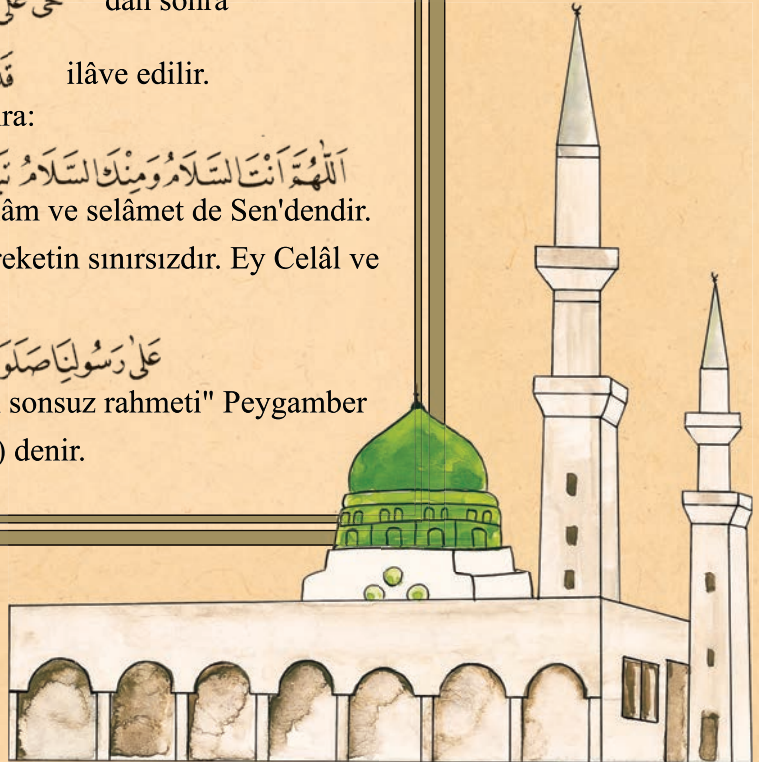 حَىَّ عَلَى dan sonra
قَدْ ilâve edilir.
ra:
اَللّٰهُمَّ اَنْتَ السَّلَامُ وَمِنْكَ السَّلَامُ
âm ve selâmet de Sen'dendir.
eketin sınırsızdır. Ey Celâl ve
عَلٰى رَسُولِنَا صَلَوَ
sonsuz rahmeti" Peygamber
) denir.